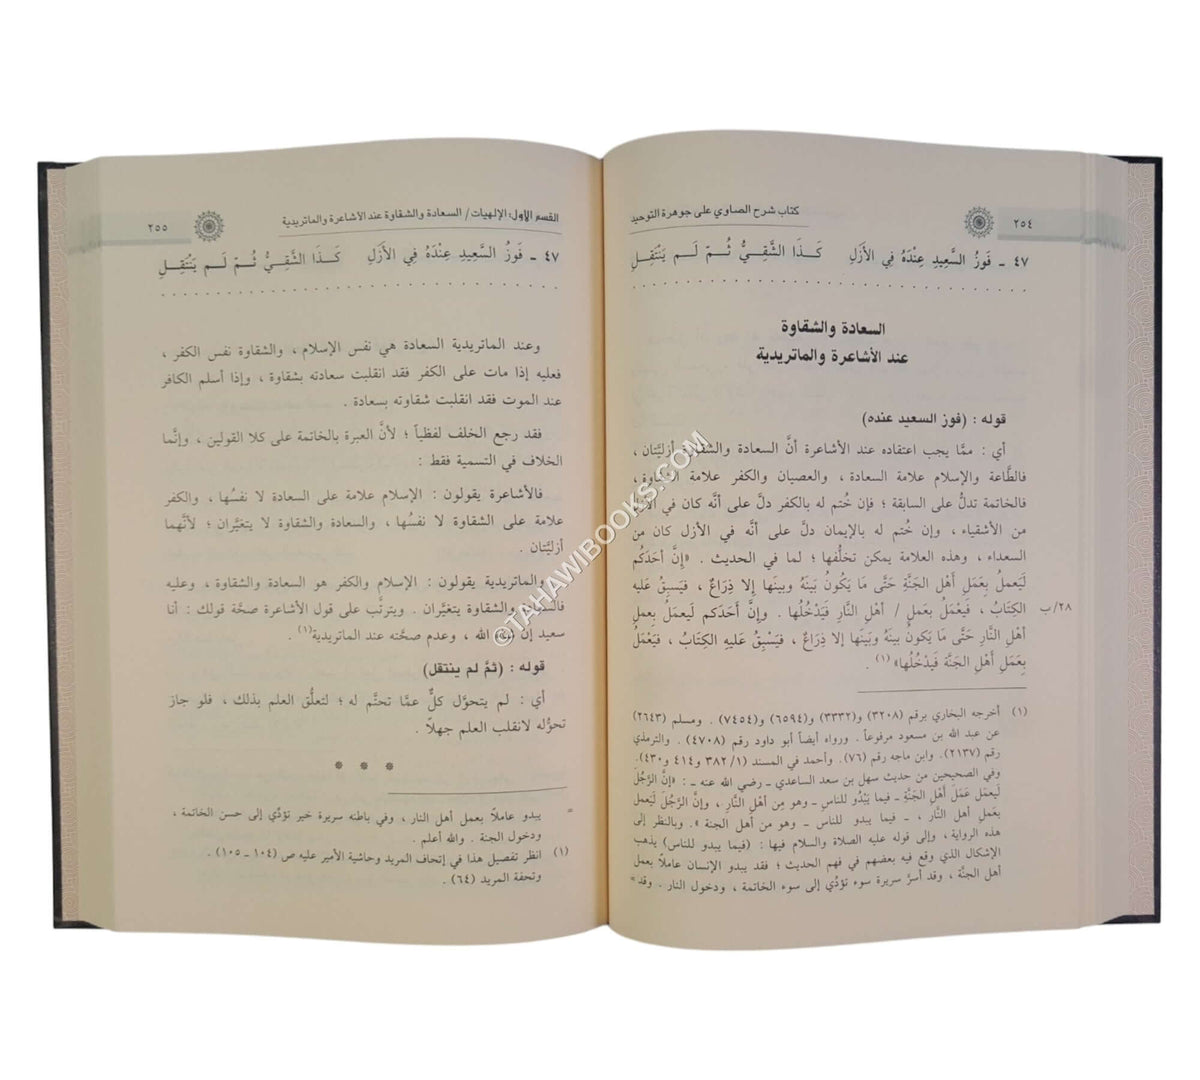 ٢٥٤
كتاب شرح الصاوي على جوهرة التوحيد
٤٧ ـ فَوزُ السَّعِيدِ عِنْدَهُ فِي الأَزَلِ كَذَا الشَّقِيُّ ثُمّ لَم يَنْتَقِلِ
السعادة والشقاوة
عند الأشاعرة والماتريدية
قوله : (فوز السعيد عنده)
أي : ممَّا يجب اعتقاده عند الأشاعرة أنَّ السعادة والشقاوة أزليَّتان ،
فالطَّاعة والإسلام علامة السعادة ، والعصيان والكفر علامة الشقاوة ،
فالخاتمة تدلُّ على السابقة ؛ فإن خُتم له بالكفر دلَّ على أنَّه كان في الأزل
من الأشقياء ، وإن خُتم له بالإيمان دلَّ على أنَّه في الأزل كان من
السعداء ، وهذه العلامة يمكن تخلُّفها ؛ لما في الحديث . «إنَّ أحَدَكُم
لَيَعملُ بِعَمَلِ أَهْلِ الجَنَّةِ حَتَّى مَا يَكُونُ بَينَهُ وبينَها إلا ذِرَاعٌ ، فيَسبِقُ عَليه
الكِتَابُ ، فَيَعْمَلُ بعَملِ / أهْلِ النَّارِ فَيَدْخُلُها . وإنَّ أَحَدَكم ليَعملُ بعملِ
٢٨/ب
أهْلِ النَّارِ حَتَّى مَا يَكونُ بينَهُ وبَينَها إلا ذِرَاعٌ ، فيَسْبِقُ عليهِ الكِتَابُ ، فيَعْمَلُ
بِعَمَلِ أَهْلِ الجَنَّةِ فَيَدْخُلُها» (١) .
(١) أخرجه البخاري برقم (٣٢٠٨) و(٣٣٣٢) و(٦٥٩٤) و(٧٤٥٤) . ومسلم (٢٦٤٣)
عن عبد الله بن مسعود مرفوعاً . ورواه أيضاً أبو داود رقم (٤٧٠٨) . والترمذي
رقم (٢١٣٧). وابن ماجه رقم (٧٦). وأحمد في المسند (١/ ٣٨٢ و٤١٤ و٤٣٠).
وفي الصحيحين من حديث سهل بن سعد الساعدي ـ رضي الله عنه ـ : «إنَّ الرَّجُلَ
لَيَعملُ عَمَلَ أَهْلِ الجَنَّةِ ـ فيما يَبْدُو للناسِ ـ وهو مِن أهْلِ النَّارِ ، وإنَّ الرَّجُلَ لَيَعمل
بعَملِ أهْلِ النَّار ، ـ فيما يبدو للناس ـ وهو من أهل الجنة ». وبالنظر إلى
هذه الرواية ، وإلى قوله عليه الصلاة والسلام فيها : (فيما يبدو للناس) يذهب
الإشكال الذي وقع فيه بعضهم في فهم الحديث ؛ فقد يبدو الإنسان عاملًا بعمل
أهل الجنَّة ، وقد أسرَّ سريرة سوء تؤدِّي إلى سوء الخاتمة ، ودخول النار . وقد =
القسم الأول: الإلهيات/ السعادة والشقاوة عند الأشاعرة والماتريدية
٢٥٥
٤٧ ـ فَوزُ السَّعِيدِ عِنْدَهُ فِي الأَزَلِ كَذَا الشَّقِيُّ ثُمّ لَم يَنْتَقِلِ
وعند الماتريدية السعادة هي نفس الإسلام ، والشقاوة نفس الكفر ،
فعليه إذا مات على الكفر فقد انقلبت سعادته بشقاوة ، وإذا أسلم الكافر
عند الموت فقد انقلبت شقاوته بسعادة .
فقد رجع الخلف لفظياً ؛ لأنَّ العبرة بالخاتمة على كلا القولين ، وإنَّما
الخلاف في التسمية فقط :
فالأشاعرة يقولون : الإسلام علامة على السعادة لا نفسُها ، والكفر
علامة على الشقاوة لا نفسُها، والسعادة والشقاوة لا يتغيَّران ؛ لأنَّهما
أزليَّتان .
والماتريدية يقولون : الإسلام والكفر هو السعادة والشقاوة ، وعليه
فالسعادة والشقاوة يتغيَّران . ويترتَّب على قول الأشاعرة صحَّة قولك : أنا
سعيد إن شاء الله ، وعدم صحَّته عند الماتريدية(١) .
قوله : (ثمَّ لم ينتقل)
أي : لم يتحوَّل كلٌّ عمَّا تحتَّم له ؛ لتعلُّق العلم بذلك ، فلو جاز
تحوُّله لانقلب العلم جهلًا .
* * *
= يبدو عاملًا بعمل أهل النار ، وفي باطنه سريرة خير تؤدِّي إلى حسن الخاتمة ،
ودخول الجنة . والله أعلم .
(١) انظر تفصيل هذا في إتحاف المريد وحاشية الأمير عليه ص (١٠٤ ـ ١٠٥) .
وتحفة المريد (٦٤) .
©TAHAWIBOOKS.COM